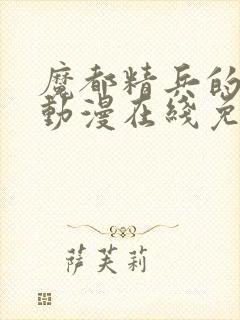 魔都精兵的
動漫在綫免
萨芙莉